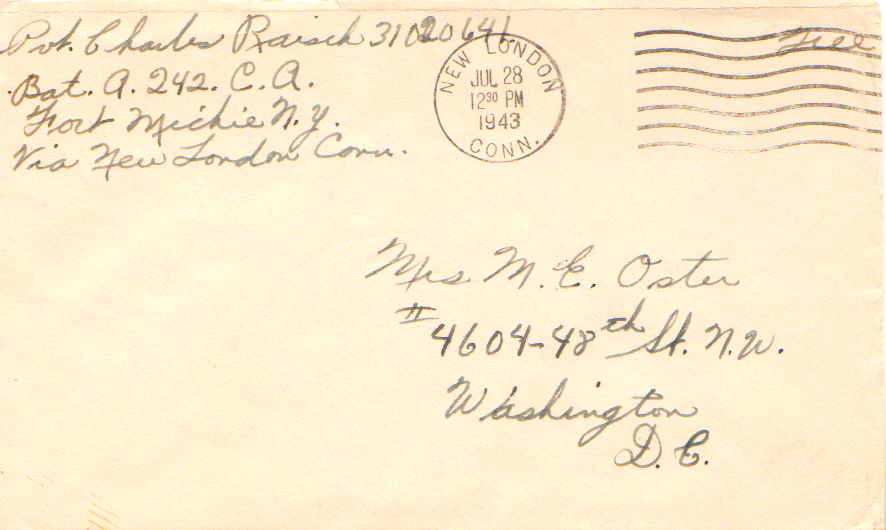 Pvt. Charles Raisch 31020641
Bat. A. 242. C. A.
Fort Michie N. Y.
Via New London Conn.
NEW LONDON
JUL 28
12 30 PM
1943
CONN.
Free
Mrs M. E. Oster
# 4604-48th St. N. W.
Washington
D. C.